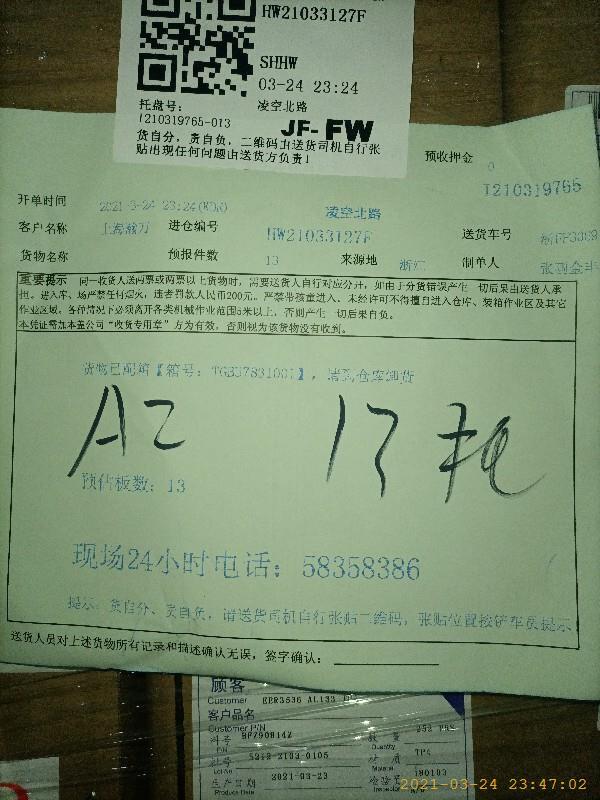 HW21033127F
SHHW
03-24 23:24
托盘号: 凌空北路
1210319765-013
JF-FW
货自分，责自负，二维码由送货司机自行张
贴出现任何问题由送货方负责!
预收押金 0
I210319765
开单时间 2021-3-24 23:24 凌空北路
客户名称 上海 进仓编号 HW21033127F 送货车号
货物名称 预报件数 13 来源地 浙江 制单人
重要提示 同一收货人送两票或两票以上货物时，需要送货人自行对应分开，如由于分货错误产生一切后果由送货人承
担。进入库、场严禁任何烟火，违者罚款人民币200元。严禁带孩童进入，未经许可不得擅自进入仓库、装箱作业区及其它
作业区域，各种情况下必须离开各类机械作业范围5米以上，否则产生一切后果自负。
本凭证需加本盖公司“收货专用章”方为有效，否则视为该货物没有收到。
货物已配箱【箱号: 】，请到仓库卸货
A2 13托
预估板数: 13
现场24小时电话: 58358386
提示: 货自分、责自负，请送货司机自行张贴二维码，张贴位置按铲车员提示
送货人员对上述货物所有记录和描述确认无误，签字确认:
顾客
Customer
客户品名
Customer P/N
料号
P/N
批号 5212-2103-0105
Lot No
生产日期 2021-03-23
Produce Date
数量
Quantity
材质
Material
检验
2021-03-24 23:47:02